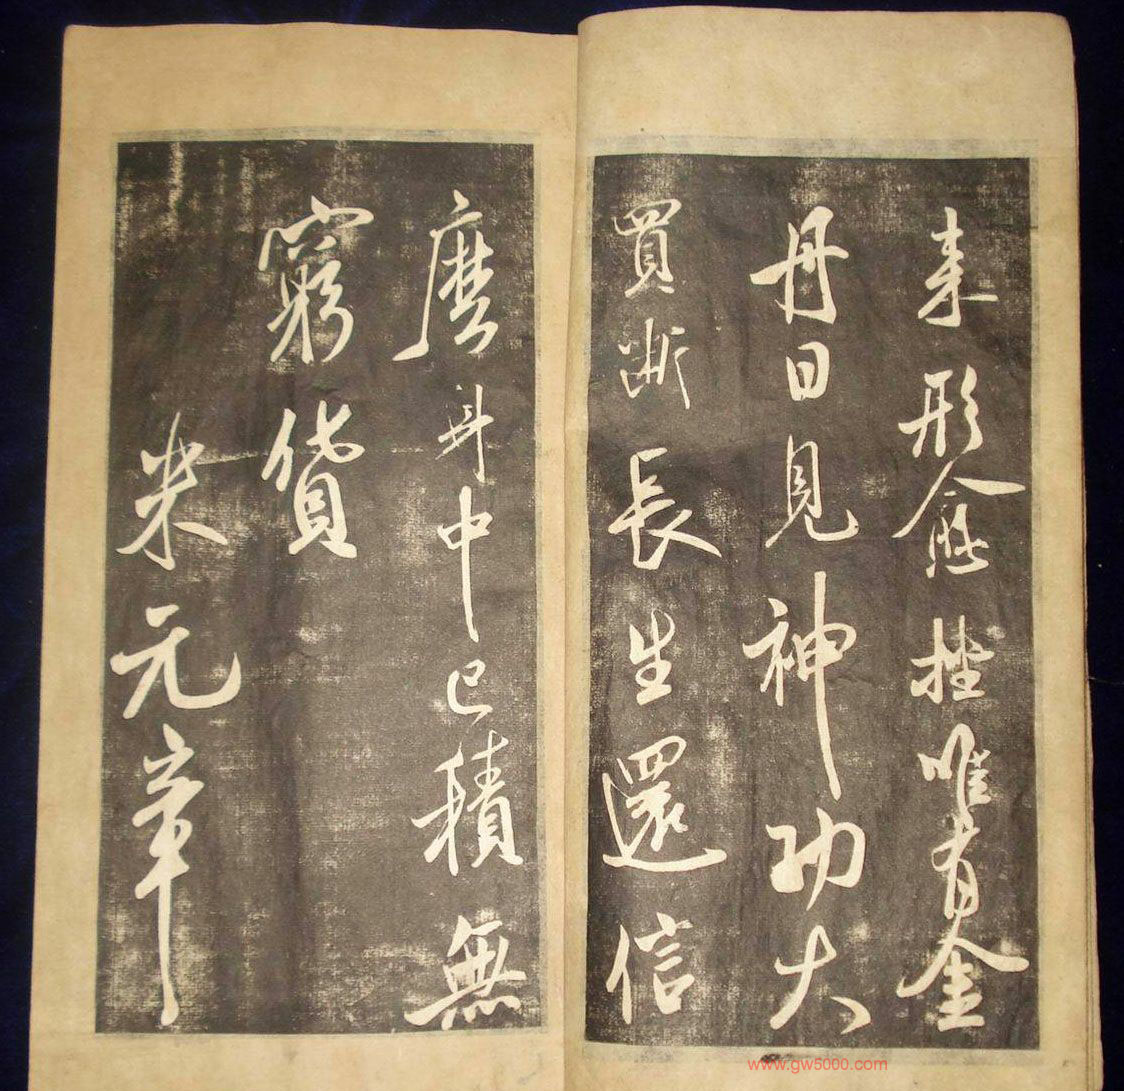 来形愈拙唯有金
丹日見神功大
買斷長生還信
麽斗中已積無
窮貨
米元章
www.gw5000.com